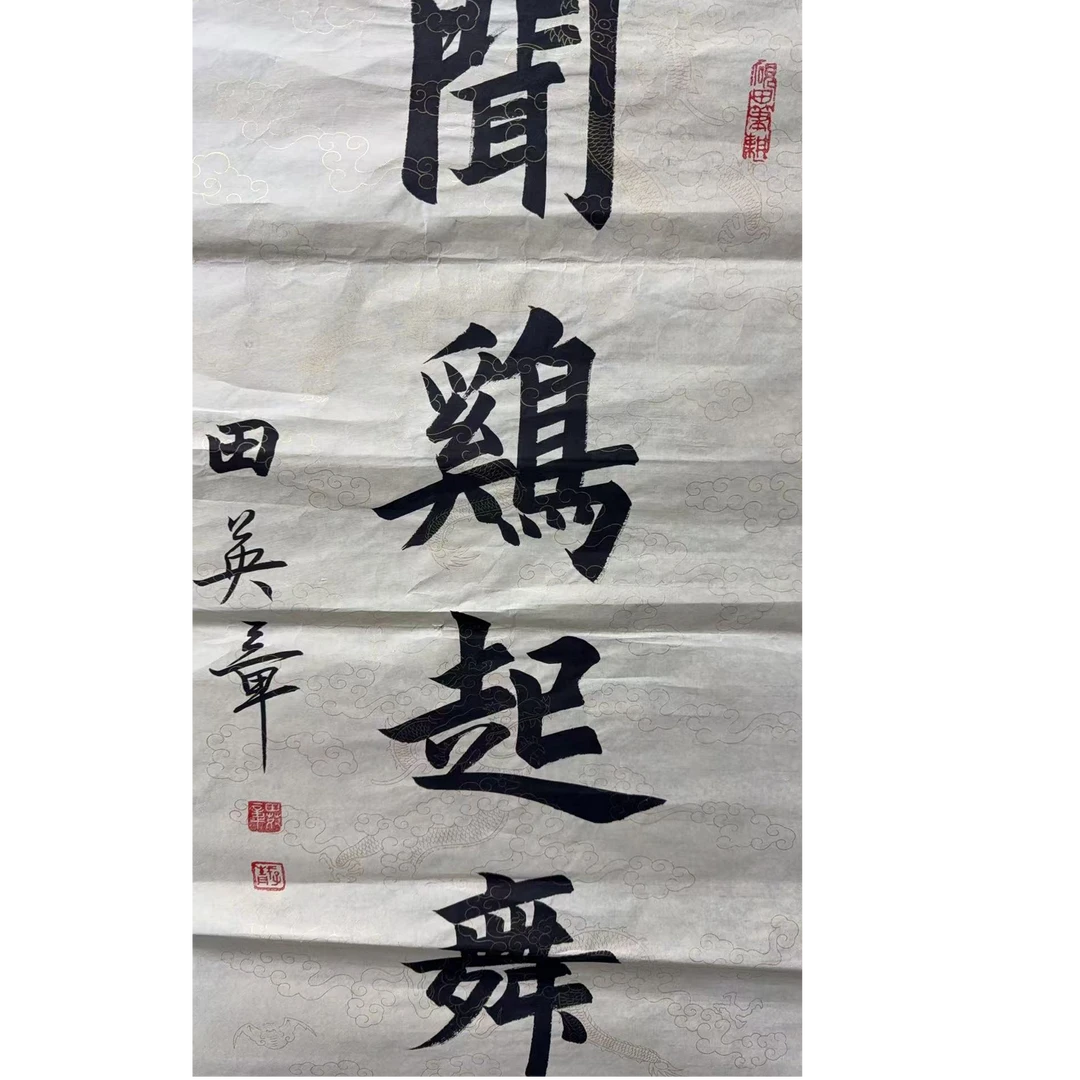 聞鷄起舞
田英章